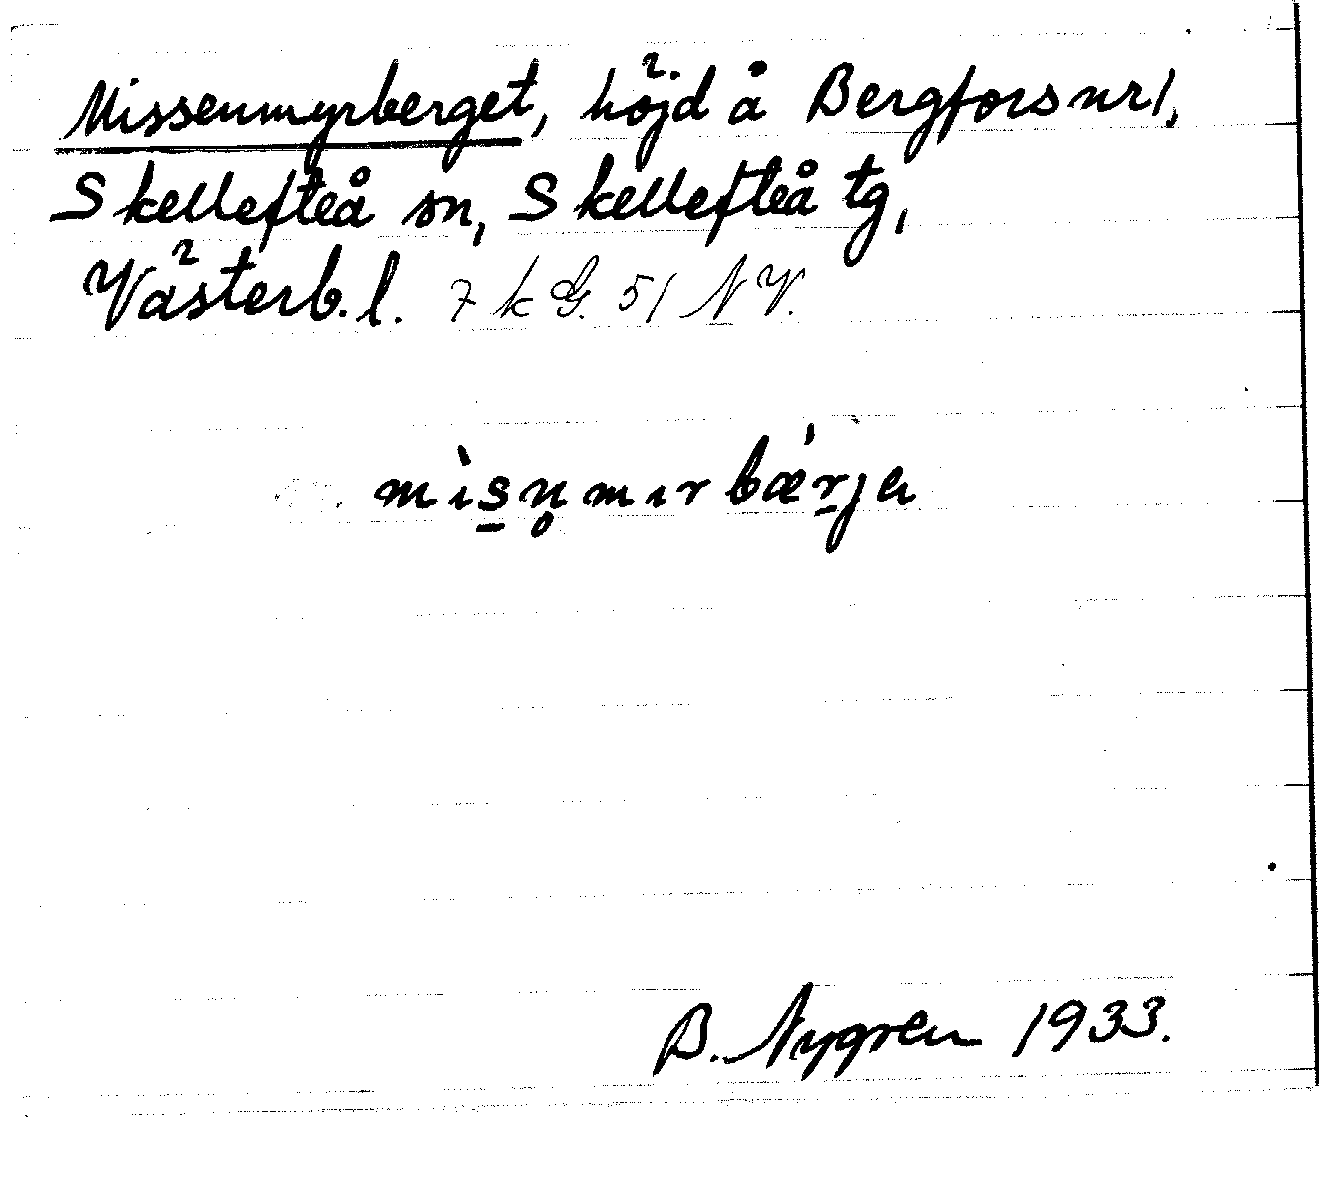 Missenmyrberget, höjd å Bergfors nr 1,
Skellefteå sn, Skellefteå tg,
Västerb. l. 7 k G. 51 NV.
mìs̲n̥mırbǽr̲ja
B. Nygren 1933.